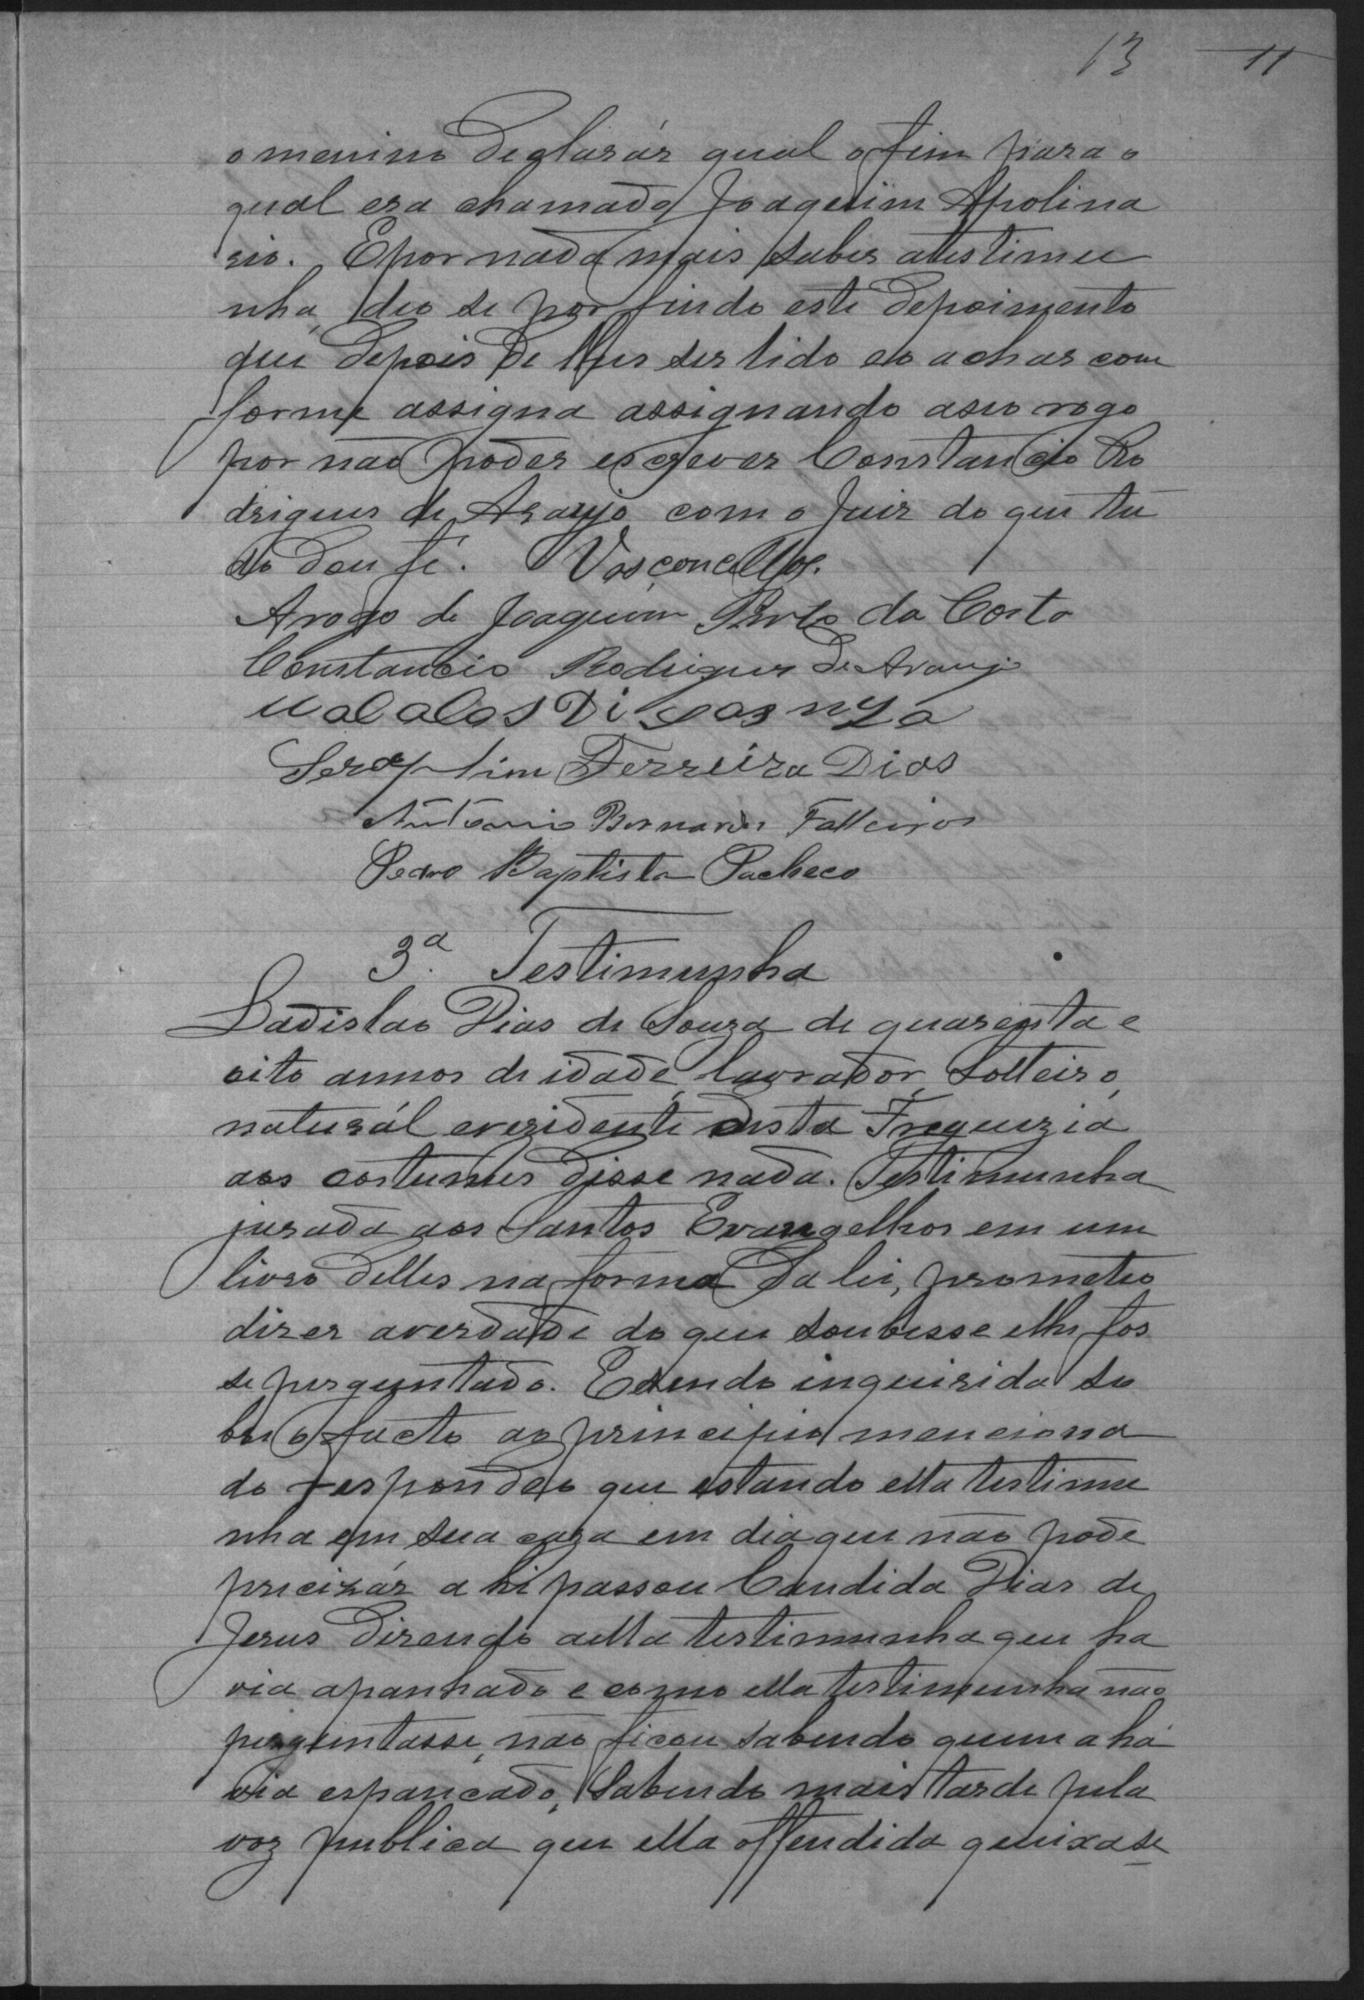 13 11
o menino declarár qual o fim para o
qual era chamado Joaquim Apolina
rio. E por nada mais saber a testimu
nha, deo se por findo este depoimento
que depois de lhes ser lido e o achar com
forme assigna assignando a seo rogo
por não poder escrever Constancio Ro
drigues de Araujo com o Juiz do que tu
do dou fé. Vasconcellos.
A rogo de Joaquim da Costa
Constancio Rodrigues de Araujo

Seraphim Ferreira Dias
Antonio Bernardes Falleiros
Pedro Baptista Pacheco
3ª. Testimunha
Ladislao Dias de Souza de quarenta e
oito annos de idade, lavrador, Solteiro,
naturál e rezidente desta Freguezia
aos costumes disse nada. Testimunha
jurada aos Santos Evangelhos em um
livro delles na forma da lei, prometeo
dizer a verdade do que soubesse e lhe fos
se perguntado. E sendo inquirida so
bre o facto ao principio menciona
do respondeo que estando ella testimu
nha em sua caza em dia que não pode
precizár ahi passou Candida Dias de
Jesus dizendo a ella testimunha que ha
via apanhado e como ella testimunha não
perguntasse, não ficou sabendo quem a ha
via espancado, Sabendo mais tarde pela
voz publica que ella offendida queixase